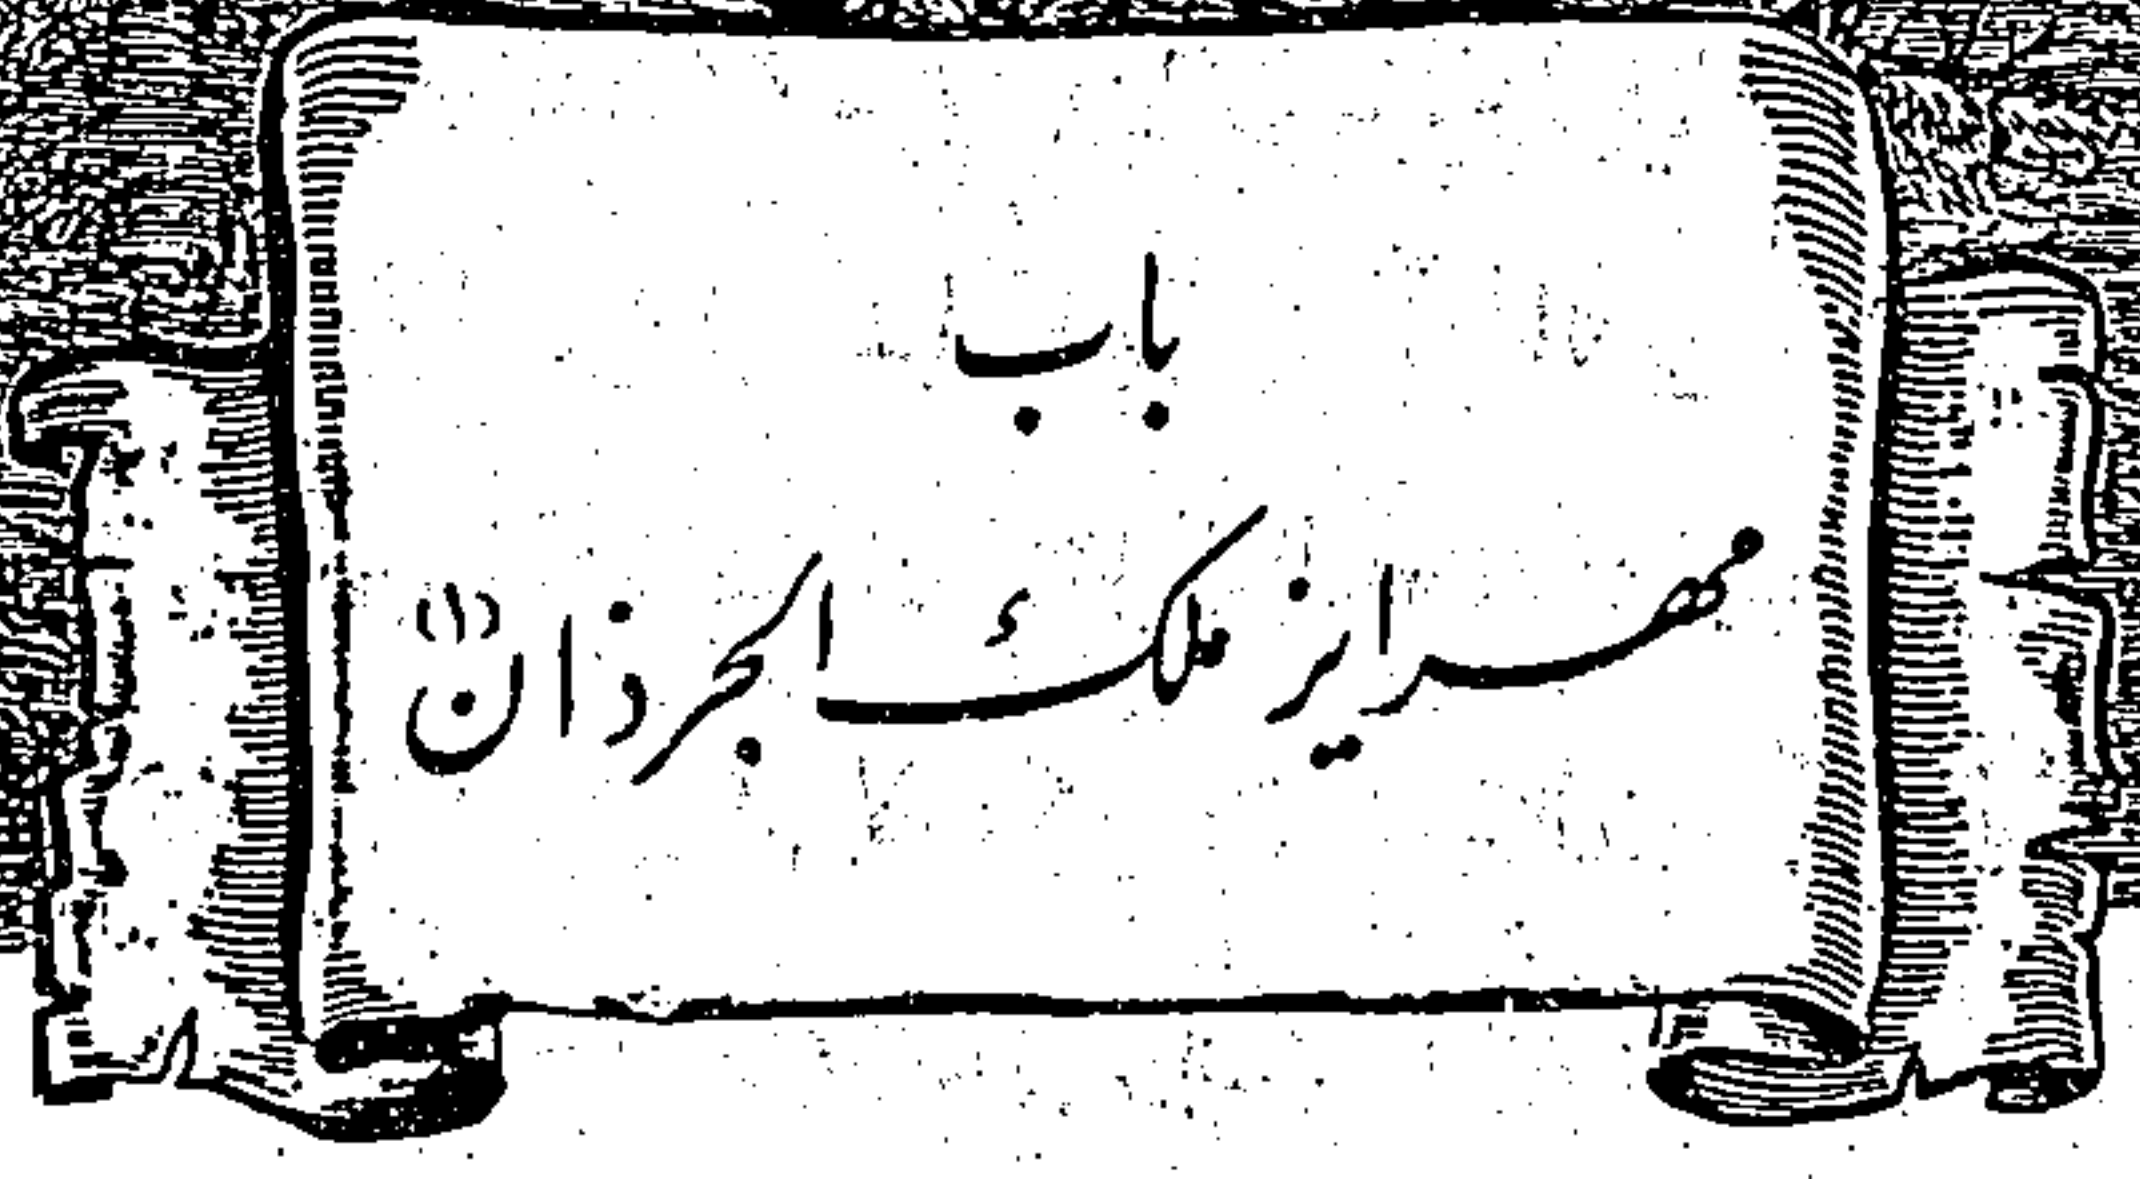 باب
مهرايز ملك الجرذان (١)